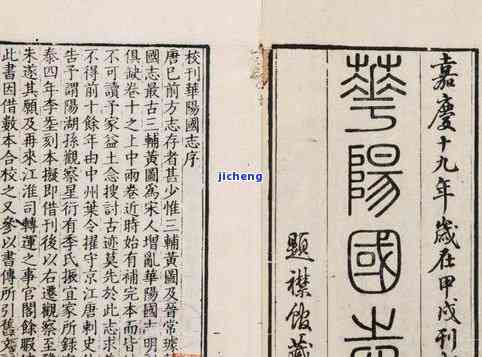 嘉慶十九年歲在甲戌刊
華陽國志
題襟館藏
校刊華陽國志序
唐已前方志存者甚少惟三輔黃圖及晉常璩
國志最古三輔黃圖為宋人增亂華陽國志明
俱缺卷十之上中兩卷近時始有補完本而皆
不可讀予家益土念搜討古迹莫先於此志求
不得前十餘年由中州葉令擢守京江唐刺史
告予謂陽湖孫觀察星衍有李氏振宜家所錄
泰四年李刻本擬即借刊後以右遷觀察至
未遂其願及再來江淮司轉運之事官閣餘暇
此書因借數本合校之又參以書傳所引舊文
jicheng